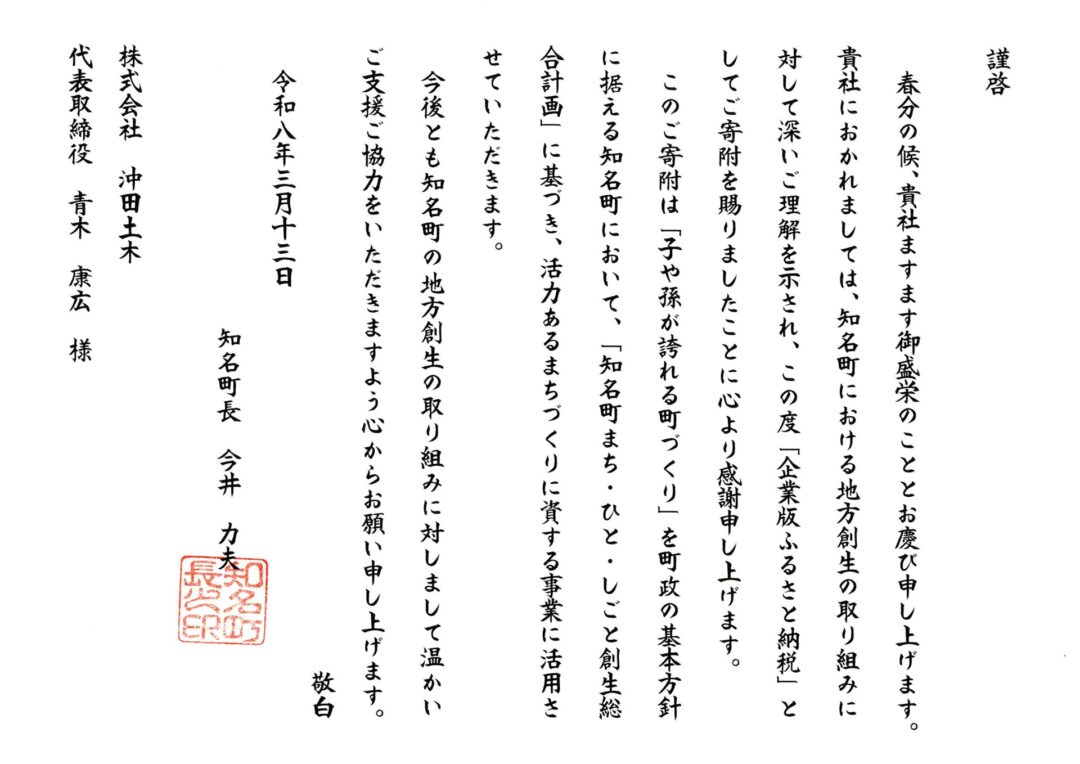 謹啓
春分の候、貴社ますます御盛栄のこととお慶び申し上げます。
貴社におかれましては、知名町における地方創生の取り組みに
対して深いご理解を示され、この度「企業版ふるさと納税」と
してご寄附を賜りましたことに心より感謝申し上げます。
このご寄附は「子や孫が誇れる町づくり」を町政の基本方針
に据える知名町において、「知名町まち・ひと・しごと創生総
合計画」に基づき、活力あるまちづくりに資する事業に活用さ
せていただきます。
今後とも知名町の地方創生の取り組みに対しまして温かい
ご支援ご協力をいただきますよう心からお願い申し上げます。
敬白
令和八年三月十三日
知名町長 今井 力夫
知名町
長公印
株式会社 沖田土木
代表取締役 青木 康広 様